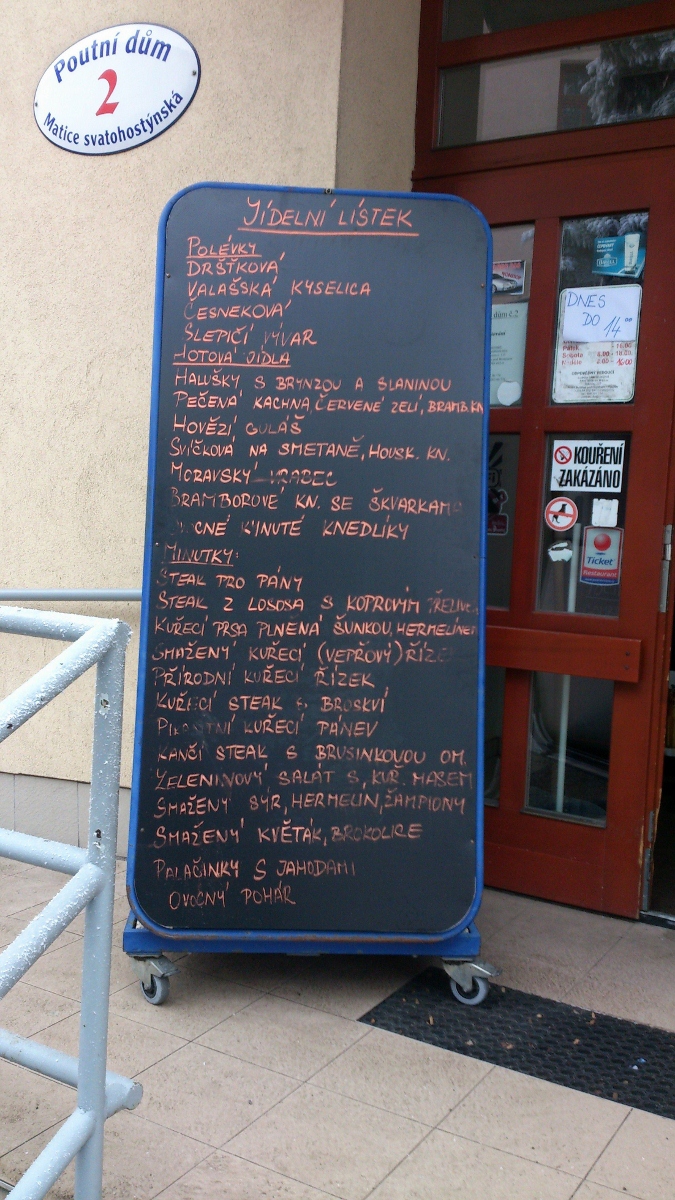 Poutní dům
2
Matice svatohostýnská
JÍDELNÍ LÍSTEK
POLÉVKY
DRŠŤKOVÁ
VALAŠSKÁ KYSELICA
ČESNEKOVÁ
SLEPIČÍ VÝVAR
HOTOVÁ JÍDLA
HALUŠKY S BRYNZOU A SLANINOU
PEČENÁ KACHNA, ČERVENÉ ZELÍ, BRAMB. KN
HOVĚZÍ GULÁŠ
SVÍČKOVÁ NA SMETANĚ, HOUSK. KN.
MORAVSKÝ VRABEC
BRAMBOROVÉ KN. SE ŠKVARKAMI
KYNUTÉ KNEDLÍKY
MINUTKY:
STEAK PRO PÁNY
STEAK Z LOSOSA S KOPROVÝM PŘELIVEM
KUŘECÍ PRSA PLNĚNÁ ŠUNKOU, HERMELÍNEM
SMAŽENÝ KUŘECÍ (VEPŘOVÝ) ŘÍZEK
PŘÍRODNÍ KUŘECÍ ŘÍZEK
KUŘECÍ STEAK S BROSKVÍ
PIKANTNÍ KUŘECÍ PÁNEV
KANČÍ STEAK S BRUSINKOVOU OM.
ZELENINOVÝ SALÁT S KUŘ. MASEM
SMAŽENÝ SÝR, HERMELIN, ŽAMPIONY
SMAŽENÝ KVĚTÁK, BROKOLICE
PALAČINKY S JAHODAMI
OVOCNÝ POHÁR
DNES
DO 14 00
KOUŘENÍ
ZAKÁZÁNO
Ticket
Restaurant